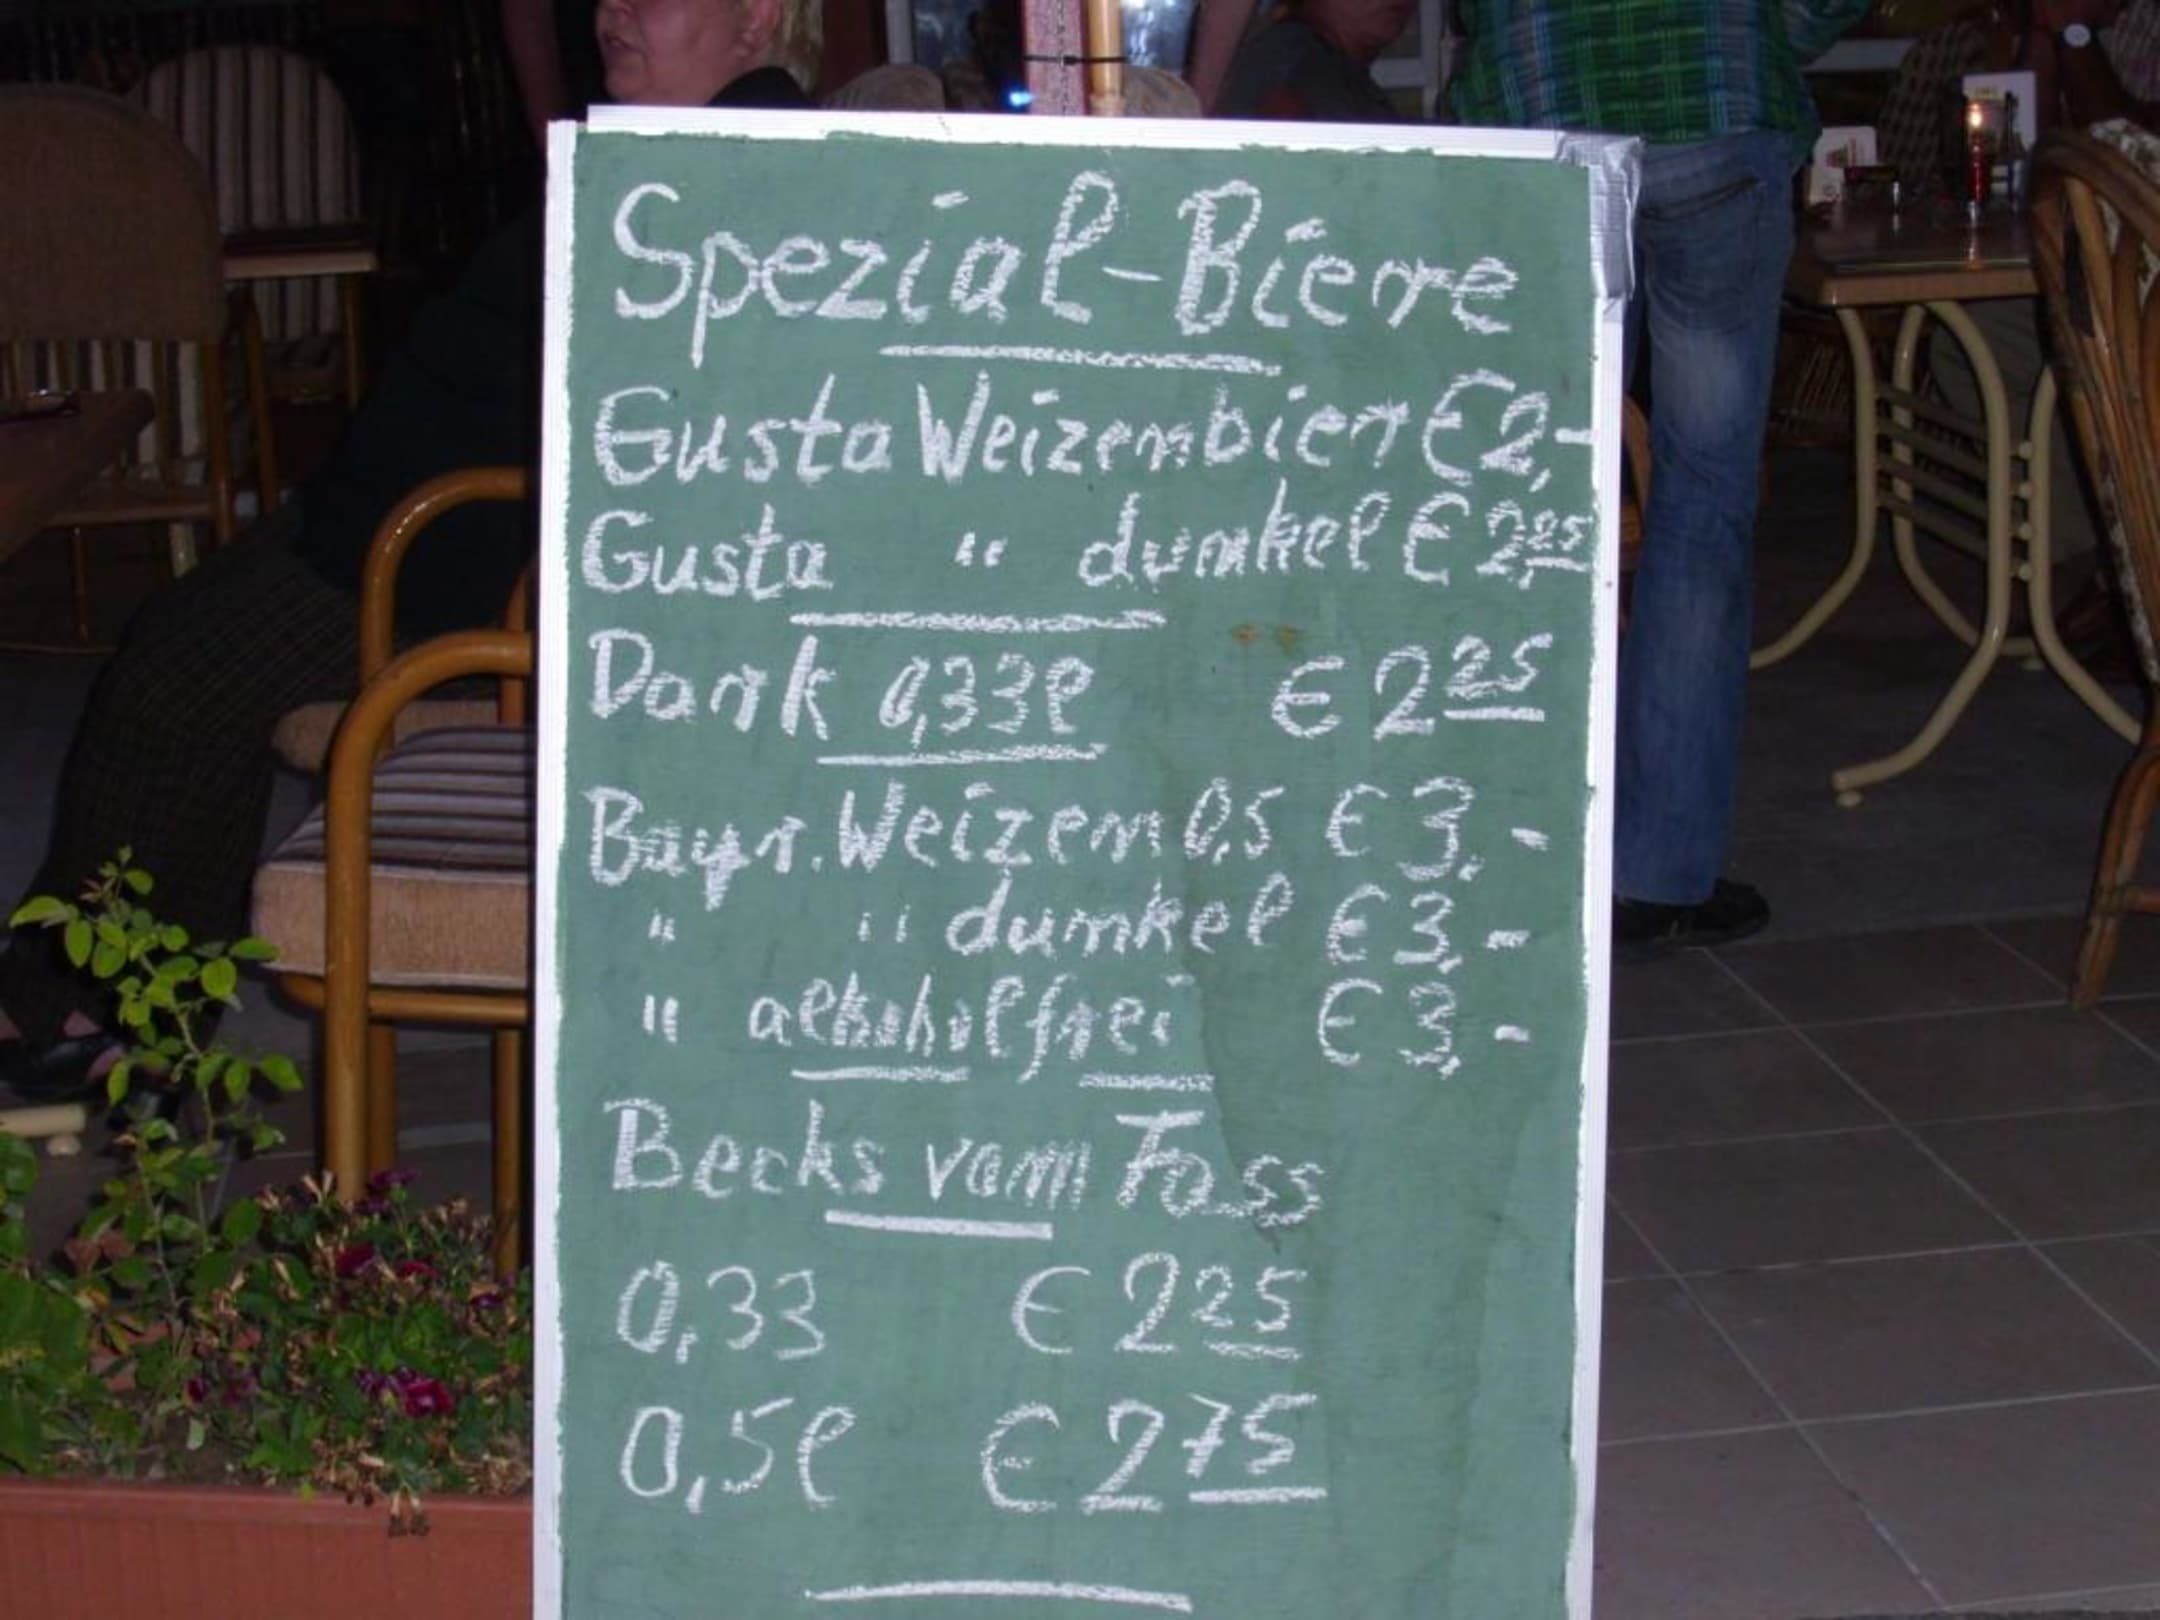 Spezial-Biere
Gusta Weizenbier € 2,-
Gusta " dunkel € 2,25
Dark 0,33l € 2 25
Bayr. Weizen 0,5 € 3,-
" " dunkel € 3,-
" alkoholfrei € 3,-
Becks vom Fass
0,33 € 2 25
0,5l € 2 75